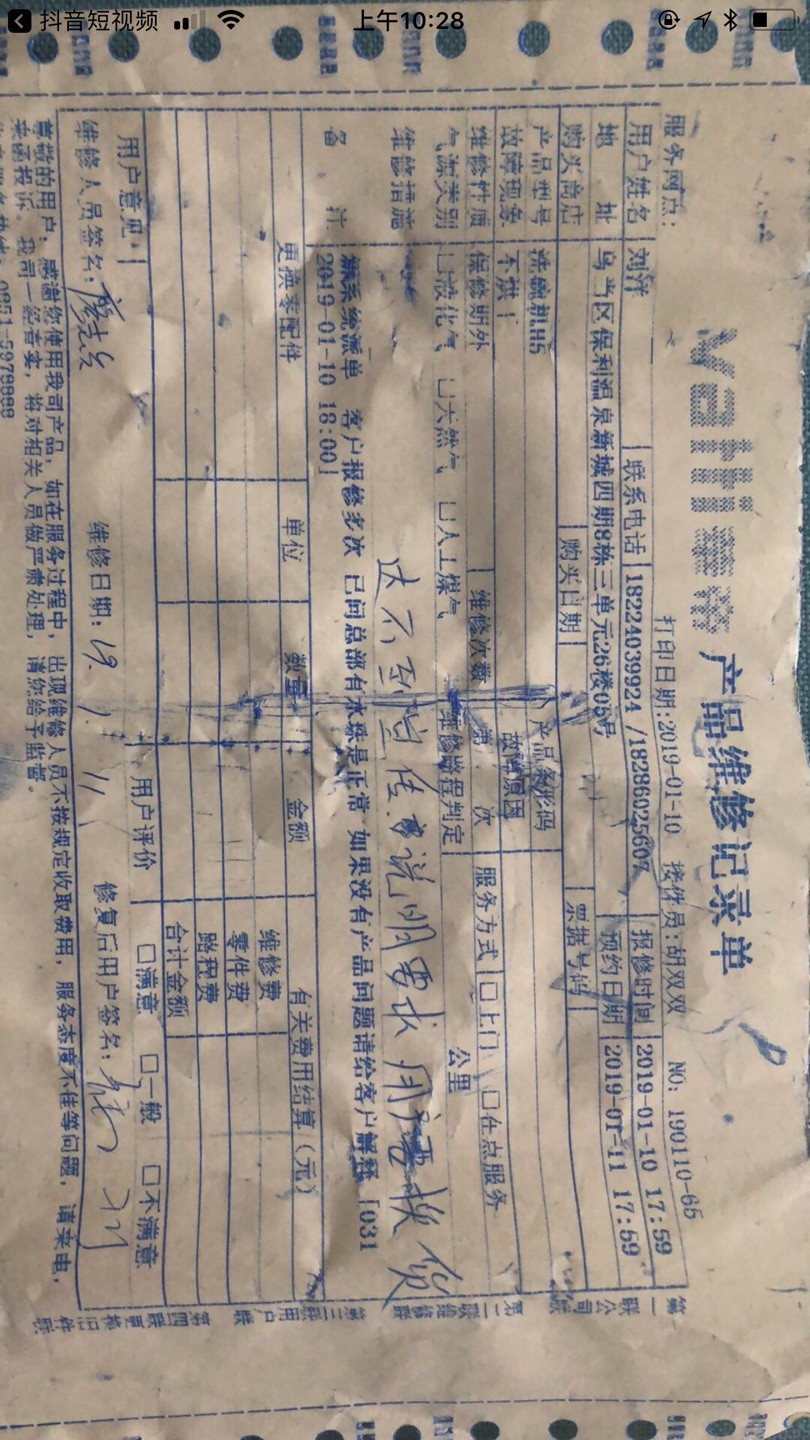 抖音短视频
上午10:28
vatti 华帝 产品维修记录单
服务网点:
打印日期:2019-01-10 接件员:胡双双 NO: 190110-65
用户姓名 刘洋 联系电话 18224039924 /18286025607 报修时间 2019-01-10 17:59
地 址 乌当区保利温泉新城四期8栋三单元26楼05号 预约日期 2019-01-11 17:59
购买商店 购买日期 票据号码
产品型号 洗碗机H5 产品条形码
故障现象 不烘干 故障原因
维修性质 保修期外 维修次数 第 次 服务方式 □上门 □在点服务
气源类别 □液化气 □天然气 □人工煤气 维修路程判定 公里
维修措施 达不到宣传 说明要求 用户要换货
备 注 新系统派单 客户报修多次 已问总部有水珠是正常 如果没有产品问题请给客户解释 [031
2019-01-10 18:00]
更换零配件 单位 数量 金额 有关费用结算(元)
维修费
零件费
路程费
合计金额
用户意见: 用户评价 □满意 □一般 □不满意
维修人员签名: 维修日期: 19. 1. 11 修复后用户签名:
尊敬的用户,感谢您使用我司产品,如在服务过程中,出现维修人员不按规定收取费用,服务态度不佳等问题,请来电,
来函投诉。我司一经查实,将对相关人员做严肃处理,请您给予监督。
0851-5978888
第一联公司联 第二联维修联 第三联用户联 第四联更换旧件联